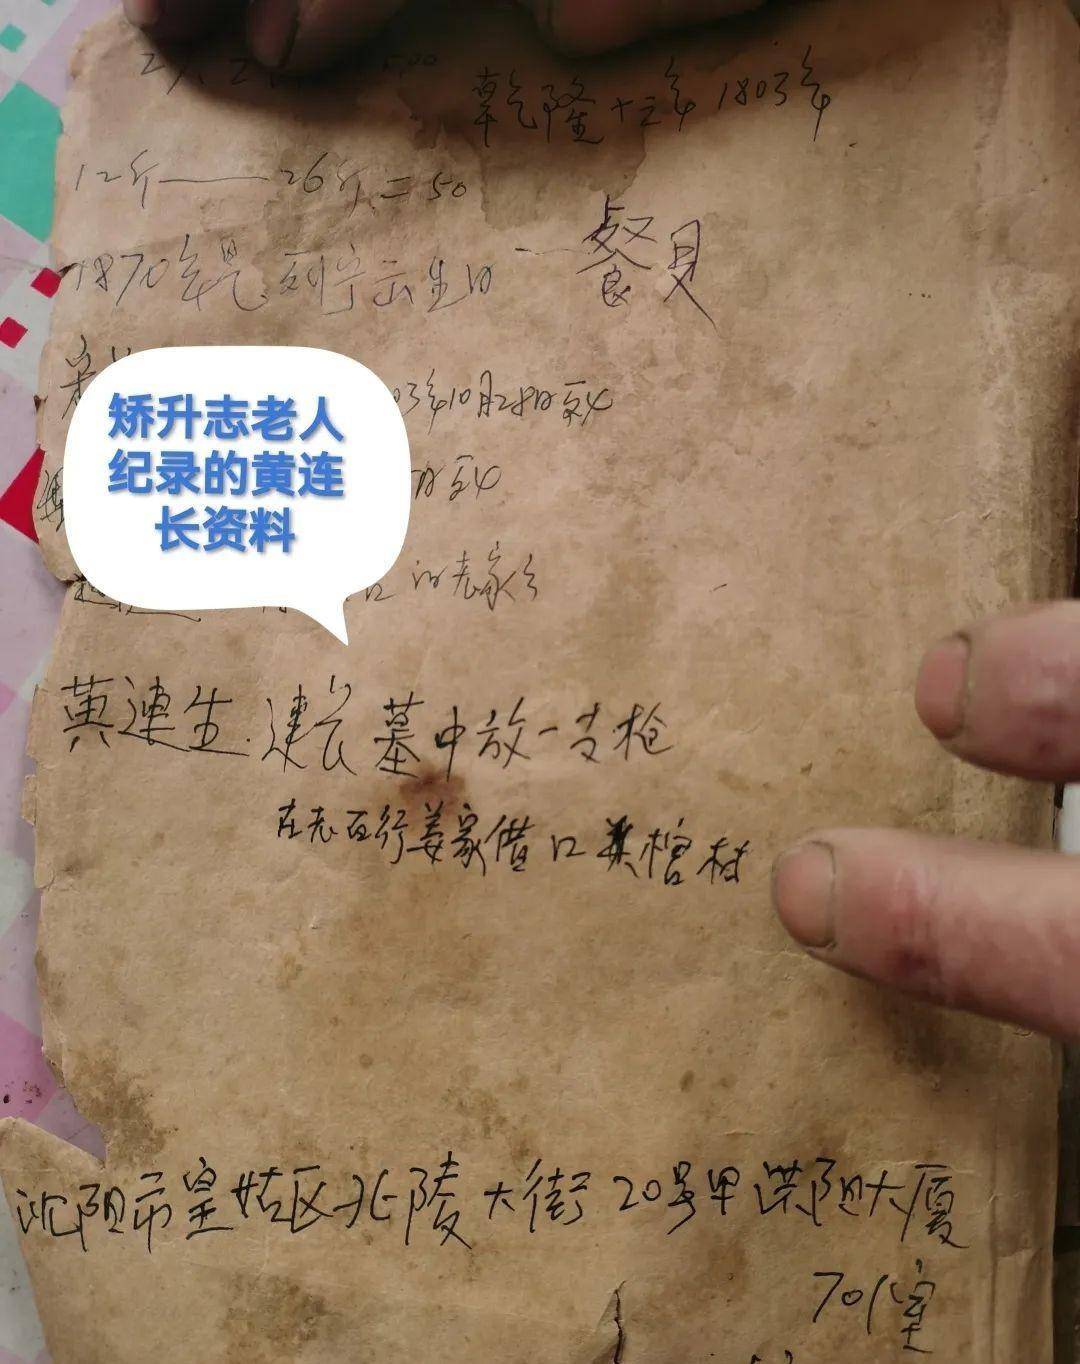 乾隆十三年 1803年
12斤——26斤=50
1870年是列宁出生日 一餐具
03年10月28日死
日死
的老家
矫升志老人
纪录的黄连
长资料
黄連生.連长墓中放一支枪
在老百行姜家借口共棺材
沈阳市皇姑区北陵大街20号甲洪阳大厦
701室